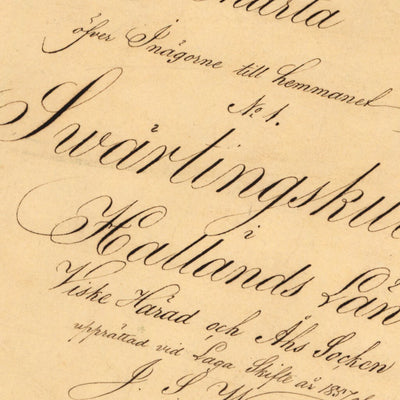 öfver Inägorne till hemmanet
No 1.
Swärtingskul
i
Hallands Län
Viske Härad och Åhs Socken
upprättad vid Laga Skifte år 1857 af
J. S. W